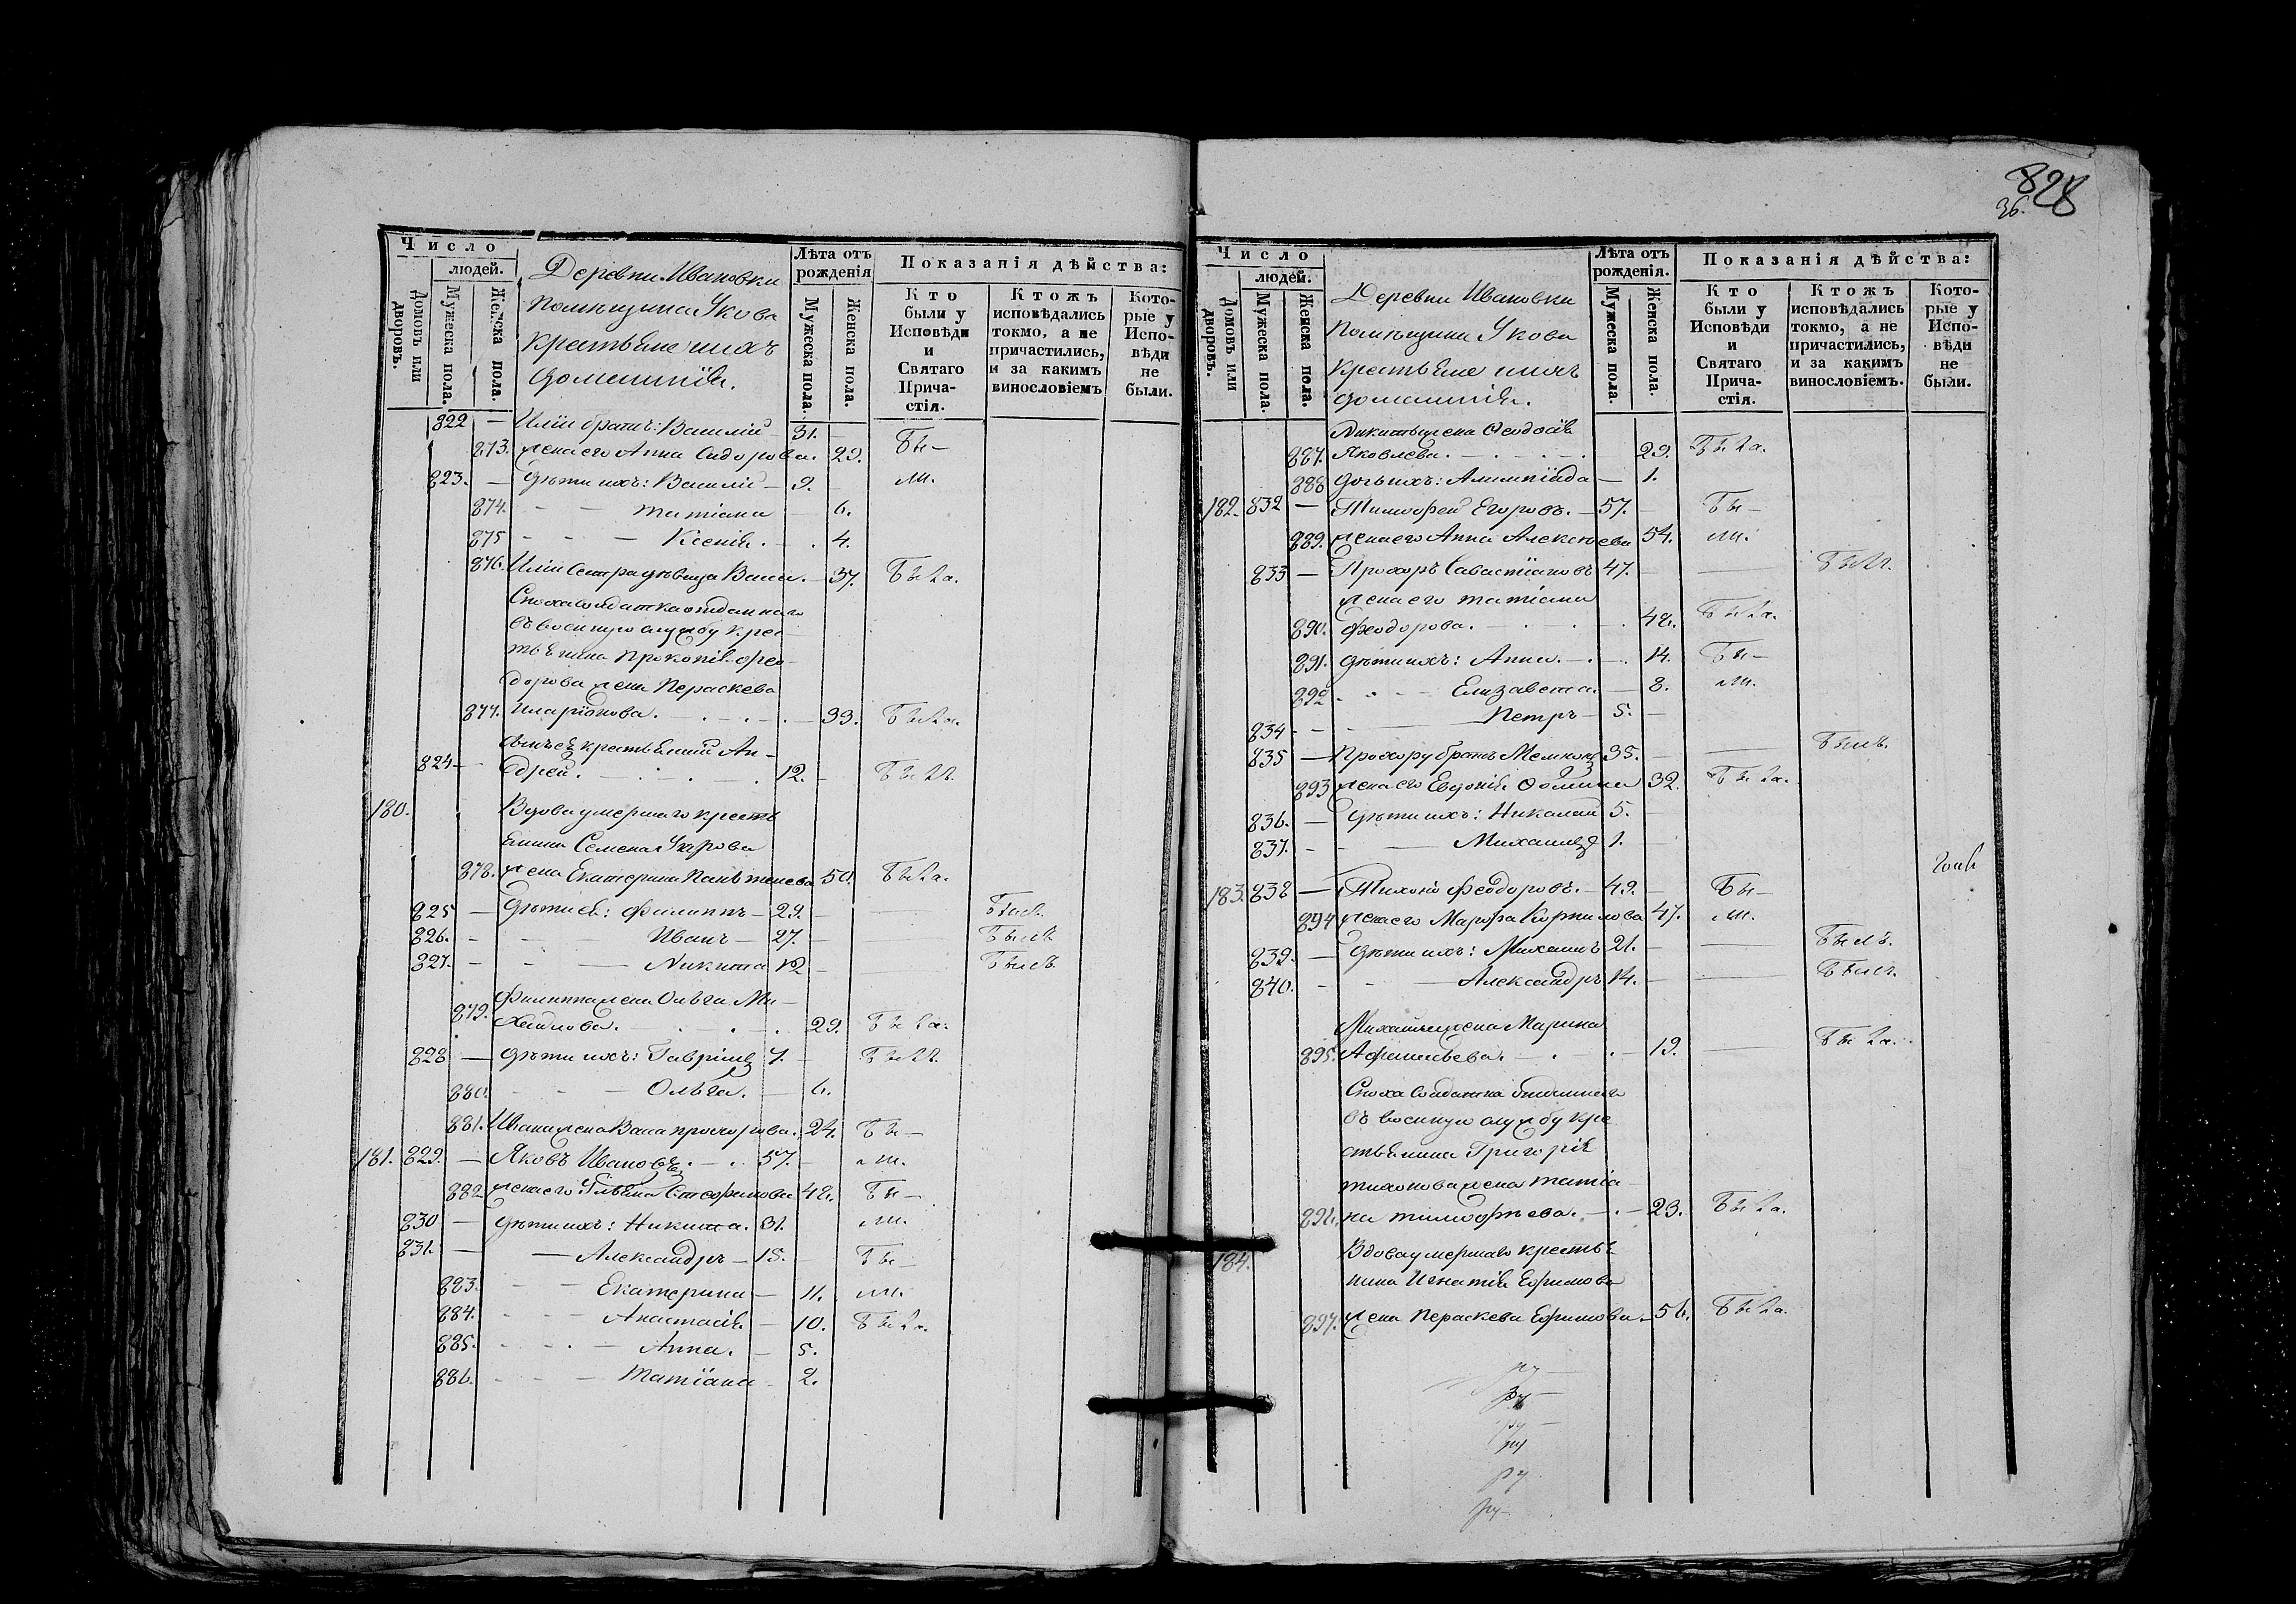 Число
людей.
Домовъ или дворовъ.
Мужеска пола.
Женска пола.
Деревни Ивановки
Помѣщика Укова
крестьяне и ихъ
домашніе.
Лѣта отъ рожденія
Мужеска пола.
Женска пола.
Показанія дѣйства:
Кто были у Исповѣди и Святаго Причастія.
Ктожъ исповѣдались токмо, а не причастились, и за какимъ винословіемъ
Которые у Исповѣди не были.
822 — Иліи братъ: Василій — 31. —
873. жена его Анна Сидорова. 29. бы—
823. — дѣти ихъ: Василій — 9. — ли.
874. — — татіана — 6.
875 — — Ксенія. — . 4.
876. Иліи Сестра дѣвица Васса. — 37. была.
Сноха солдатка отданнаго
въ военную службу крес—
тьянина Прокопія фео—
дорова жена Пераскева
877. Иларіонова. — . — . — 33. была.
крестьянинъ Ан—
824 — дрей. — . — . 12. — былъ.
180. Вдова умершаго кресть
янина Семена
878. жена Екатерина 50. была.
825 — Дѣти ея: Филиппъ — 29. — былъ.
826. — — Иванъ — 27. — былъ
827. — — Никита 12 — былъ
Филиппа жена Ольга Ми—
879. хайлова. — . — . 29. была.
828 — дѣти ихъ: Гавріилъ 7. — былъ.
880. — — Ольга. — 6.
881. Ивана жена Васса прохорова. 24. бы—
181. 829. — Яковъ Ивановъ. — . 57. — ли.
882 жена его Ульяна Стефанова 48. бы—
830 — дѣти ихъ: Никита. 31. ли.
831. — — Александръ — 15. — бы—
883. — — Екатерина — 11. ли.
884. — — Анастасія — 10. была.
885. — — Анна. — 5.
886. — — Татіана — 2.
828
36.
Число
людей.
Домовъ или дворовъ.
Мужеска пола.
Женска пола.
Деревни Ивановки
Помѣщика Укова
крестьяне и ихъ
домашніе.
Лѣта отъ рожденія.
Мужеска пола.
Женска пола.
Показанія дѣйства:
Кто были у Исповѣди и Святаго Причастія.
Ктожъ исповѣдались токмо, а не причастились, и за какимъ винословіемъ.
Которые у Исповѣди не были.
Никиты жена Ѳеодосія
887. Яковлева. — . — . 29. была.
888 дочь ихъ: Алимпіада — 1.
182. 832 — Тимоѳей Егоровъ. — 57. — бы—
889. жена его Анна Алексѣева 54. ли.
833 — Прохоръ Савастіановъ 47. — былъ.
жена его татіана
890. феодорова. — . — . 48. была.
891. дѣти ихъ: Анна. — . — . 14. бы—
892 — — Елизавета. — 8. ли.
834 — — Петръ — 5. —
835 — Прохору братъ Мемнонъ 35. — былъ.
893 жена его Евдокія Ѳомина 32. была.
836. — дѣти ихъ: Николай 5. —
837. — — Михаилъ 1.
183. 838 — Тихонъ Феодоровъ. — 49. — бы—
894 жена его Марфа Корнилова 47. ли.
839. — дѣти ихъ: Михаилъ 21. — былъ.
840. — — Александръ 14. — былъ.
Михаила жена Марина
895. Афанасьева. — . . — 19. была.
Сноха Солдатка отданнаго
въ военную службу кре
стьянина Григорія
тихонова жена татіа
896. на тимофѣева. — . — 23. была.
184. Вдова умершаго крестья
нина Игнатія Ефимова
897. жена Пераскева Ефимова. — 56. была.